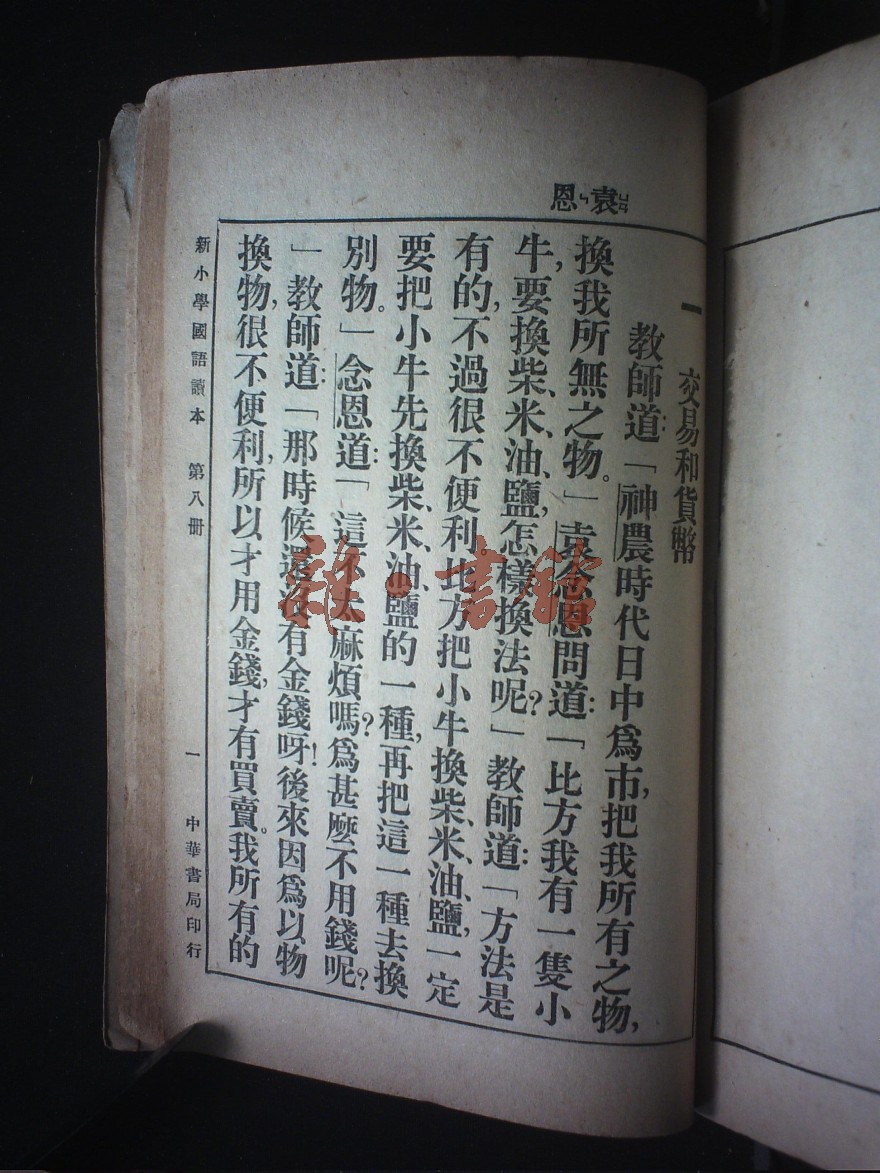 袁恩
一 交易和貨幣
教師道:「神農時代日中爲市,把我所有之物,
換我所無之物。」袁念恩問道:「比方我有一隻小
牛,要換柴、米、油、鹽,怎樣換法呢?」教師道:「方法是
有的,不過很不便利。比方把小牛換柴、米、油、鹽,一定
要把小牛先換柴、米、油、鹽的一種,再把這一種去換
別物。」念恩道:「這不太麻煩嗎?爲甚麼不用錢呢?
」教師道:「那時候還沒有金錢呀!後來因爲以物
換物,很不便利,所以才用金錢,才有買賣。我所有的
新小學國語讀本 第八冊 一 中華書局印行
雜·書館